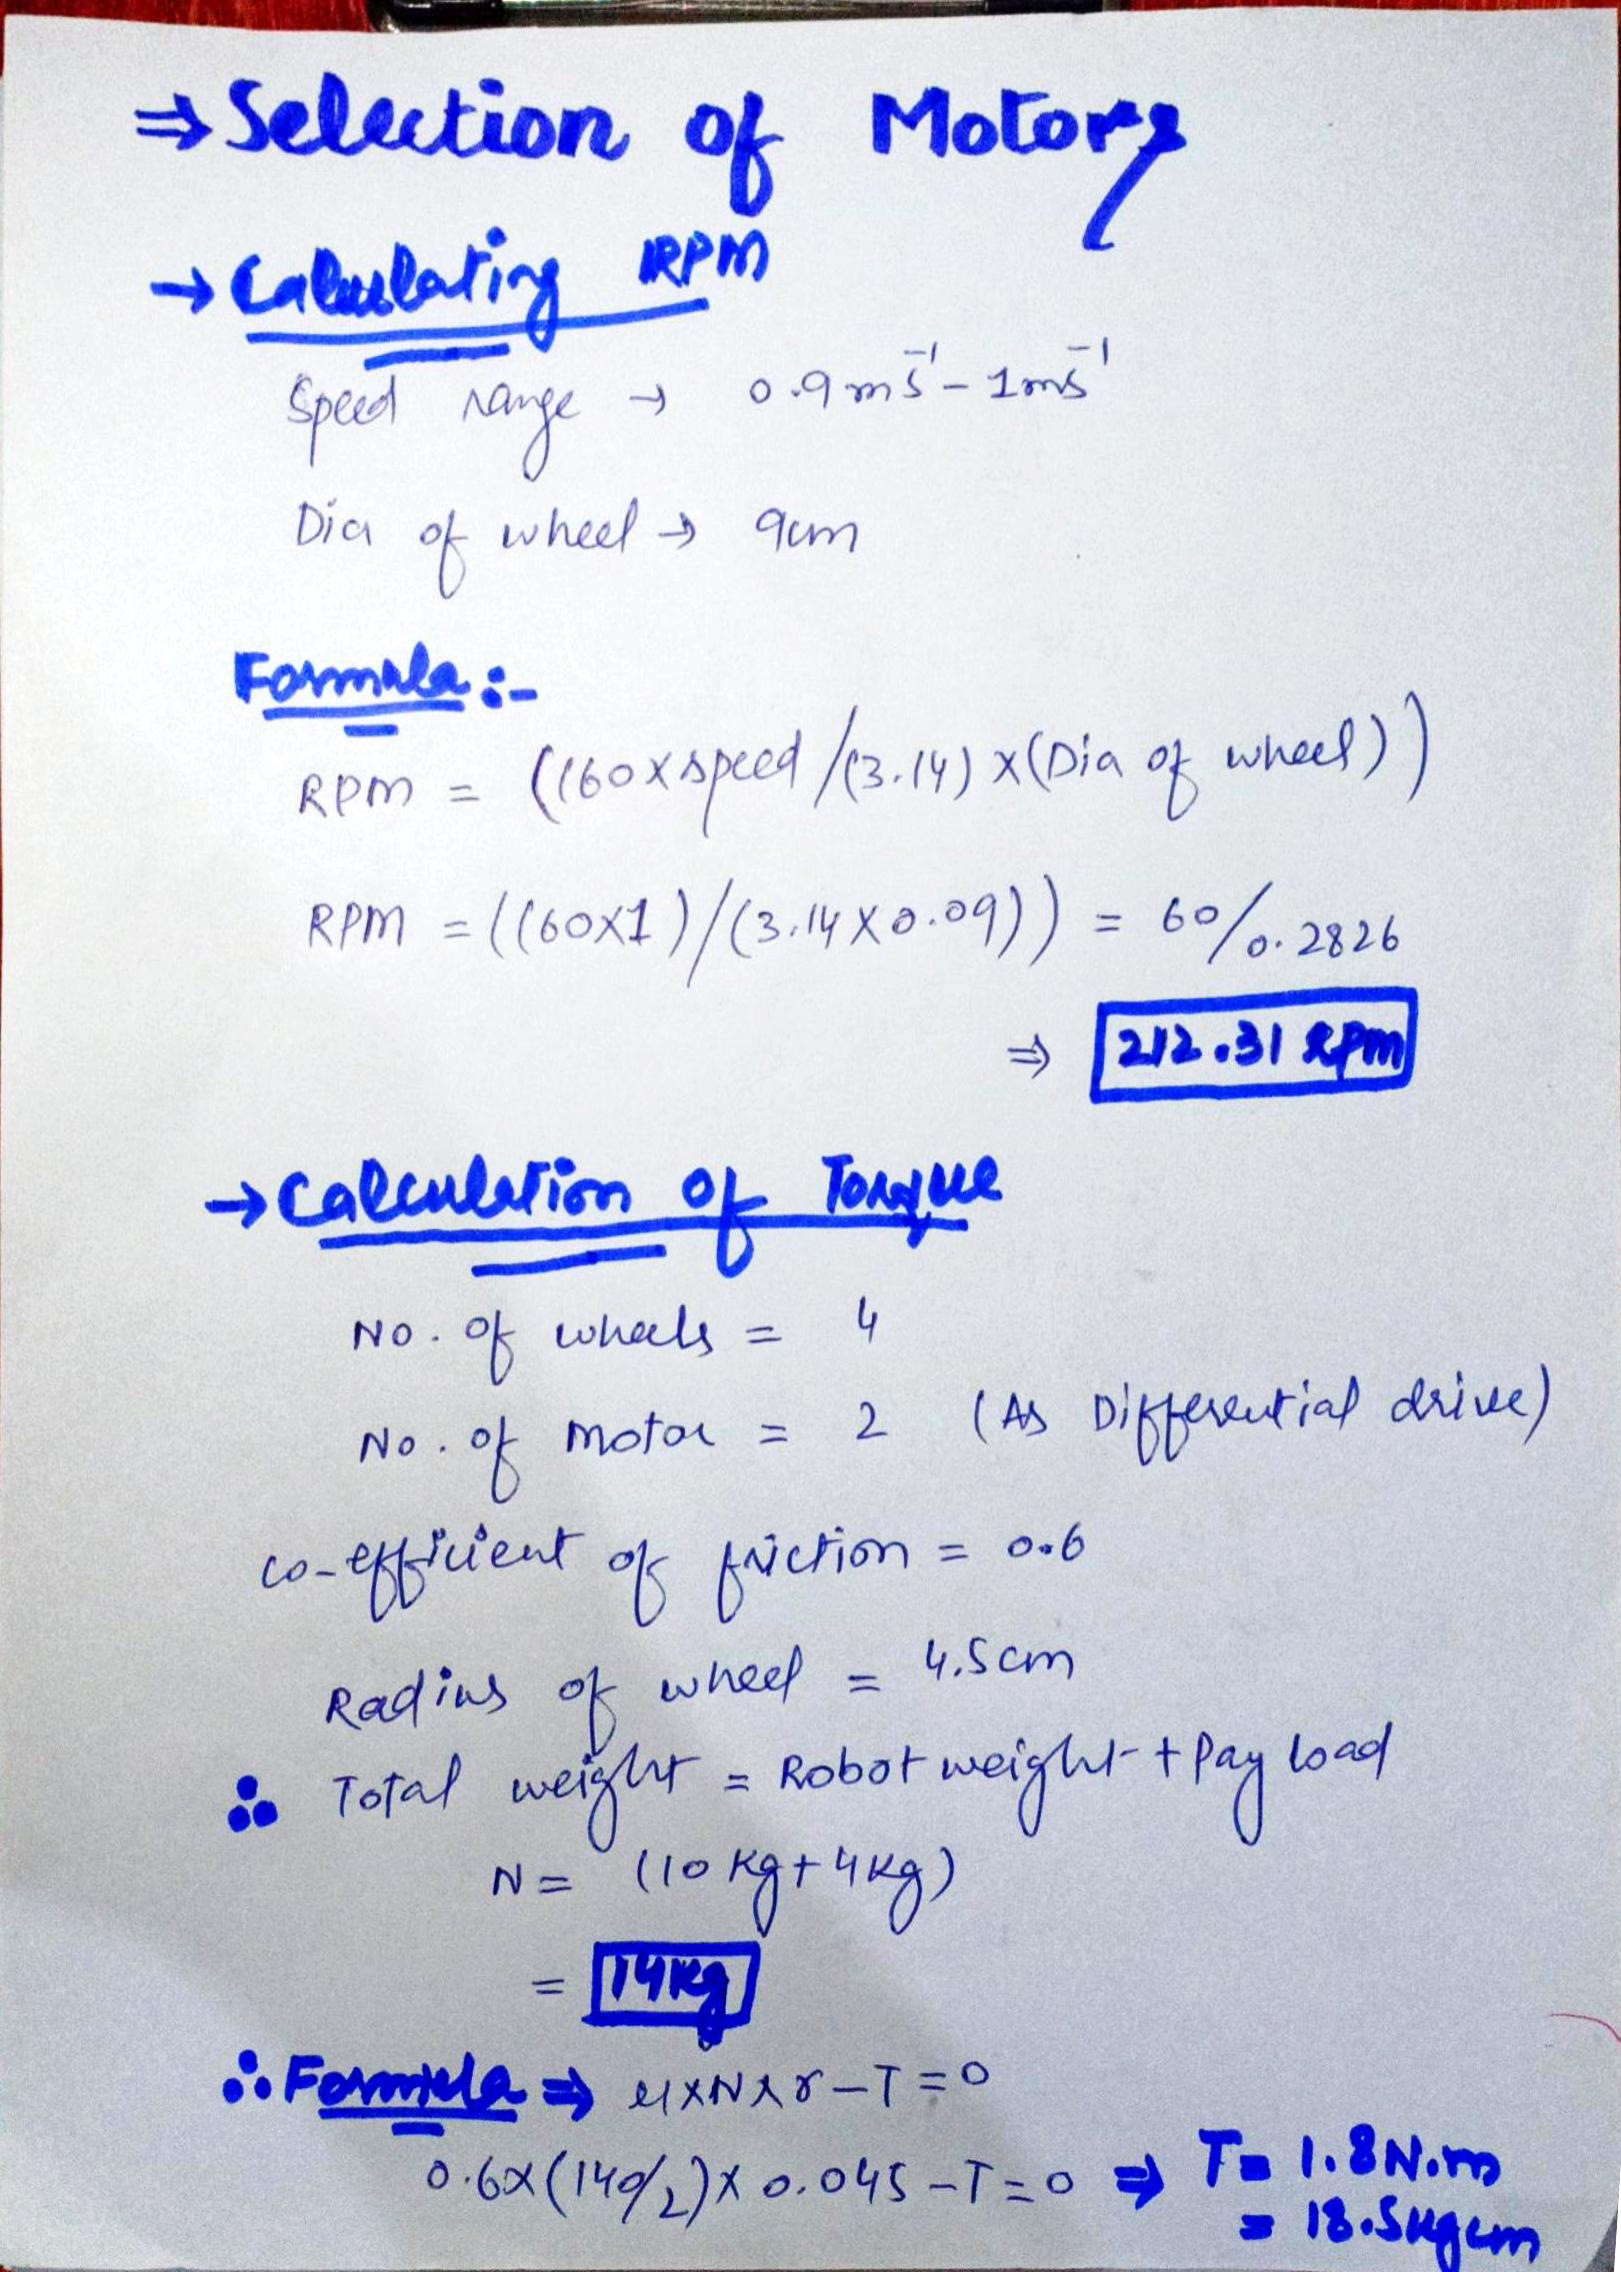 ⇒ Selection of Motors
→ Calculating RPM
Speed range → 0.9 ms⁻¹ – 1 ms⁻¹
Dia of wheel → 9cm
Formula :-
RPM = ((60 x speed / (3.14) x (Dia of wheel))
RPM = ((60x1) / (3.14 x 0.09)) = 60/0.2826
⇒ 212.31 rpm
→ Calculation of Torque
No. of wheels = 4
No. of motor = 2 (As Differential drive)
co-efficient of friction = 0.6
Radius of wheel = 4.5cm
∴ Total weight = Robot weight + Pay load
N = (10 kg + 4 kg)
= 14kg
∴ Formula ⇒ μ x N x r – T = 0
0.6 x (140/2) x 0.045 – T = 0 ⇒ T = 1.8 N.m
= 18.5 kgcm